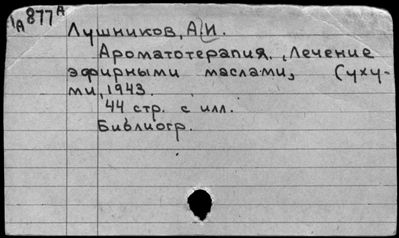 1A877A
Лушников, А.И.
Ароматотерапия. Лечение
эфирными маслами, Суху-
ми, 1943.
44 стр. с илл.
Библиогр.